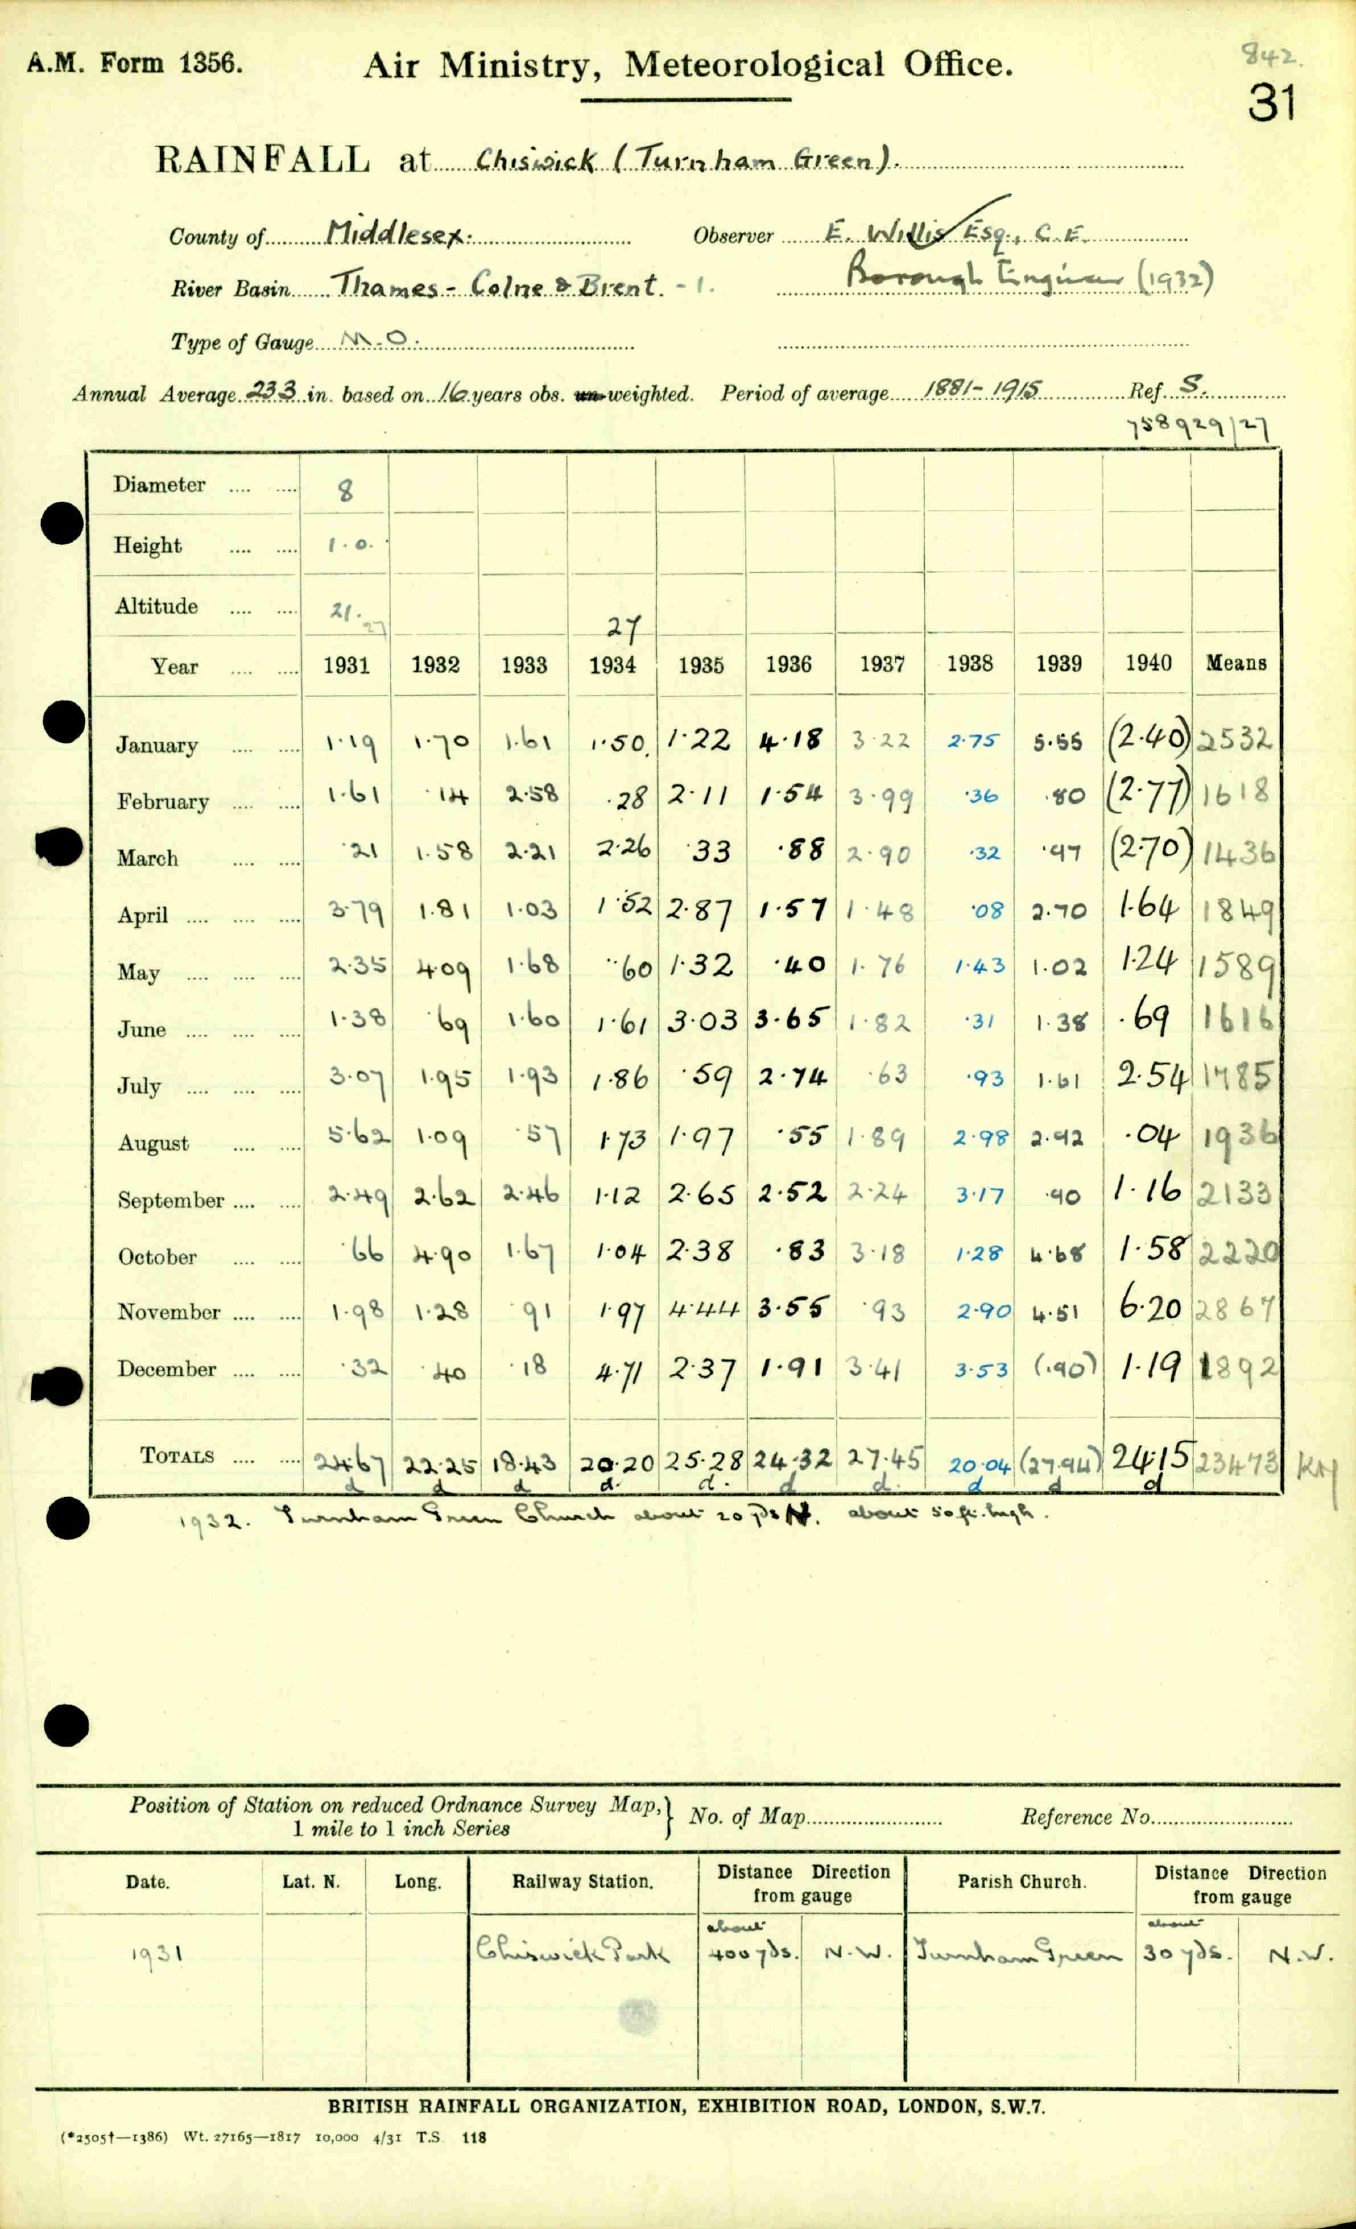 842.
A.M. Form 1356. Air Ministry, Meteorological Office.
31
RAINFALL at Chiswick (Turnham Green).
County of Middlesex. Observer E. Willis Esq., C.E.
River Basin Thames - Colne & Brent. - 1. Borough Engineer (1932)
Type of Gauge M.O.
Annual Average 23.3 in. based on 16 years obs. un-weighted. Period of average 1881-1915 Ref. S.
758929/27
Diameter .... .... 8
Height .... .... 1.0.
Altitude .... .... 21. 27 27
Year .... .... 1931 1932 1933 1934 1935 1936 1937 1938 1939 1940 Means
January .... .... 1.19 1.70 1.61 1.50 1.22 4.18 3.22 2.75 5.55 (2.40) 2532
February .... .... 1.61 .14 2.58 .28 2.11 1.54 3.99 .36 .80 (2.77) 1618
March .... .... .21 1.58 2.21 2.26 .33 .88 2.90 .32 .97 (2.70) 1436
April .... .... .... 3.79 1.81 1.03 1.52 2.87 1.57 1.48 .08 2.70 1.64 1849
May .... .... .... 2.35 4.09 1.68 .60 1.32 .40 1.76 1.43 1.02 1.24 1589
June .... .... .... 1.38 .69 1.60 1.61 3.03 3.65 1.82 .31 1.38 .69 1616
July .... .... .... 3.07 1.95 1.93 1.86 .59 2.74 .63 .93 1.61 2.54 1785
August .... .... 5.62 1.09 .57 1.73 1.97 .55 1.89 2.98 2.92 .04 1936
September .... .... 2.49 2.62 2.46 1.12 2.65 2.52 2.24 3.17 .90 1.16 2133
October .... .... .66 4.90 1.67 1.04 2.38 .83 3.18 1.28 4.68 1.58 2220
November .... .... 1.98 1.28 .91 1.97 4.44 3.55 .93 2.90 4.51 6.20 2867
December .... .... .32 .40 .18 4.71 2.37 1.91 3.41 3.53 (.90) 1.19 1892
TOTALS .... .... 24.67 22.25 18.43 20.20 25.28 24.32 27.45 20.04 (27.94) 24.15 23473
d d d d. d. d d. d d d
1932. Turnham Green Church about 20 yds N. about 50 ft. high.
Position of Station on reduced Ordnance Survey Map,} No. of Map Reference No.
1 mile to 1 inch Series
Date. Lat. N. Long. Railway Station. Distance Direction from gauge Parish Church. Distance Direction from gauge
1931 Chiswick Park about 400 yds. N.W. Turnham Green about 30 yds. N.W.
BRITISH RAINFALL ORGANIZATION, EXHIBITION ROAD, LONDON, S.W.7.
(*2505†—1386) Wt. 27165—1817 10,000 4/31 T.S. 118